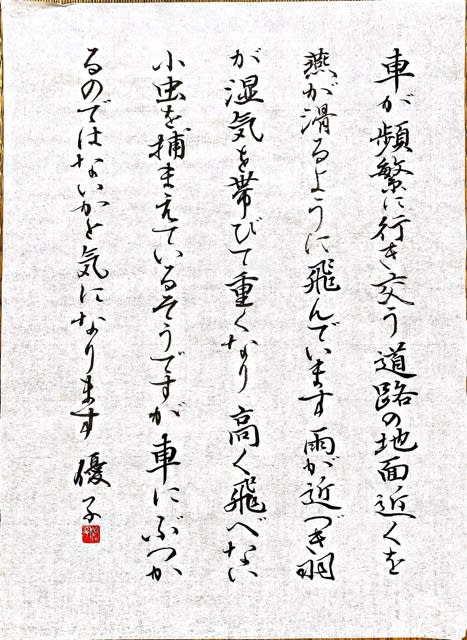 車が頻繁に行き交う道路の地面近くを
燕が滑るように飛んでいます雨が近づき羽
が湿気を帯びて重くなり高く飛べない
小虫を捕まえているそうですが車にぶつか
るのではないかと気になります 優子